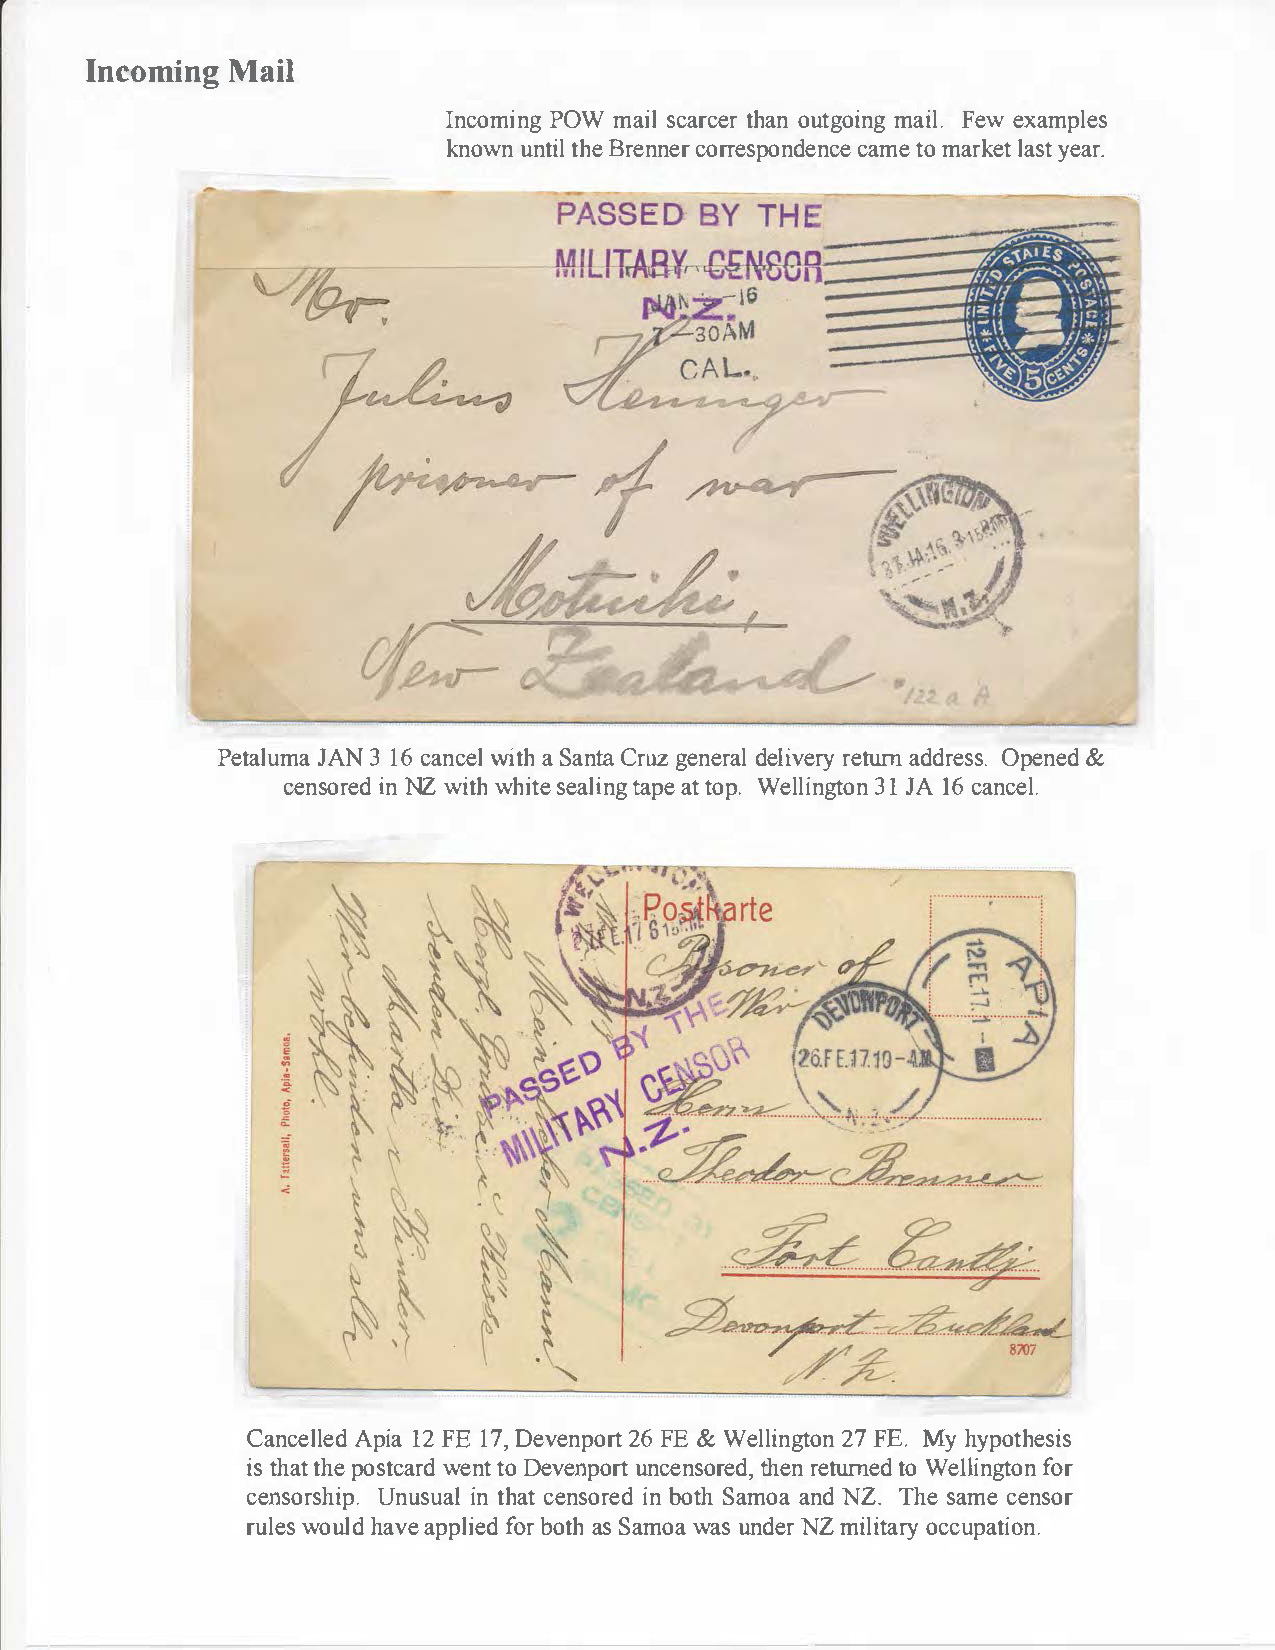 Incoming Mail
Incoming POW mail scarcer than outgoing mail. Few examples
known until the Brenner correspondence came to market last year.
PASSED BY THE
MILITARY CENSOR
N.Z.
JAN -16
7-30AM
CAL.
UNITED STATES POSTAGE
FIVE 5 CENTS
Mr.
Julius Heninger
prisoner of war
Motuihi,
New Zealand
WELLINGTON
31.JA.16. 3-15PM
N.Z.
122 a A
Petaluma JAN 3 16 cancel with a Santa Cruz general delivery return address. Opened &
censored in NZ with white sealing tape at top. Wellington 31 JA 16 cancel.
Postkarte
WELLINGTON
27FE.17 615PM
N.Z.
Prisoner of
War
DEVONPORT
26.FE.17.10-AM
N.Z.
APIA
12.FE.17.1-
PASSED BY THE
MILITARY CENSOR
N.Z.
PASSED
CENS
2
Herrn
Theodor Brenner
Fort Cautly
Devonport - Auckland
N. Z.
8707
Mein lieber Mann!
Herzl. Grüsse u. Küsse
senden Dir
Martha u Kinder.
Wir befinden uns alle
wohl.
A. Tattersall, Photo, Apia-Samoa.
Cancelled Apia 12 FE 17, Devenport 26 FE & Wellington 27 FE. My hypothesis
is that the postcard went to Devenport uncensored, then returned to Wellington for
censorship. Unusual in that censored in both Samoa and NZ. The same censor
rules would have applied for both as Samoa was under NZ military occupation.